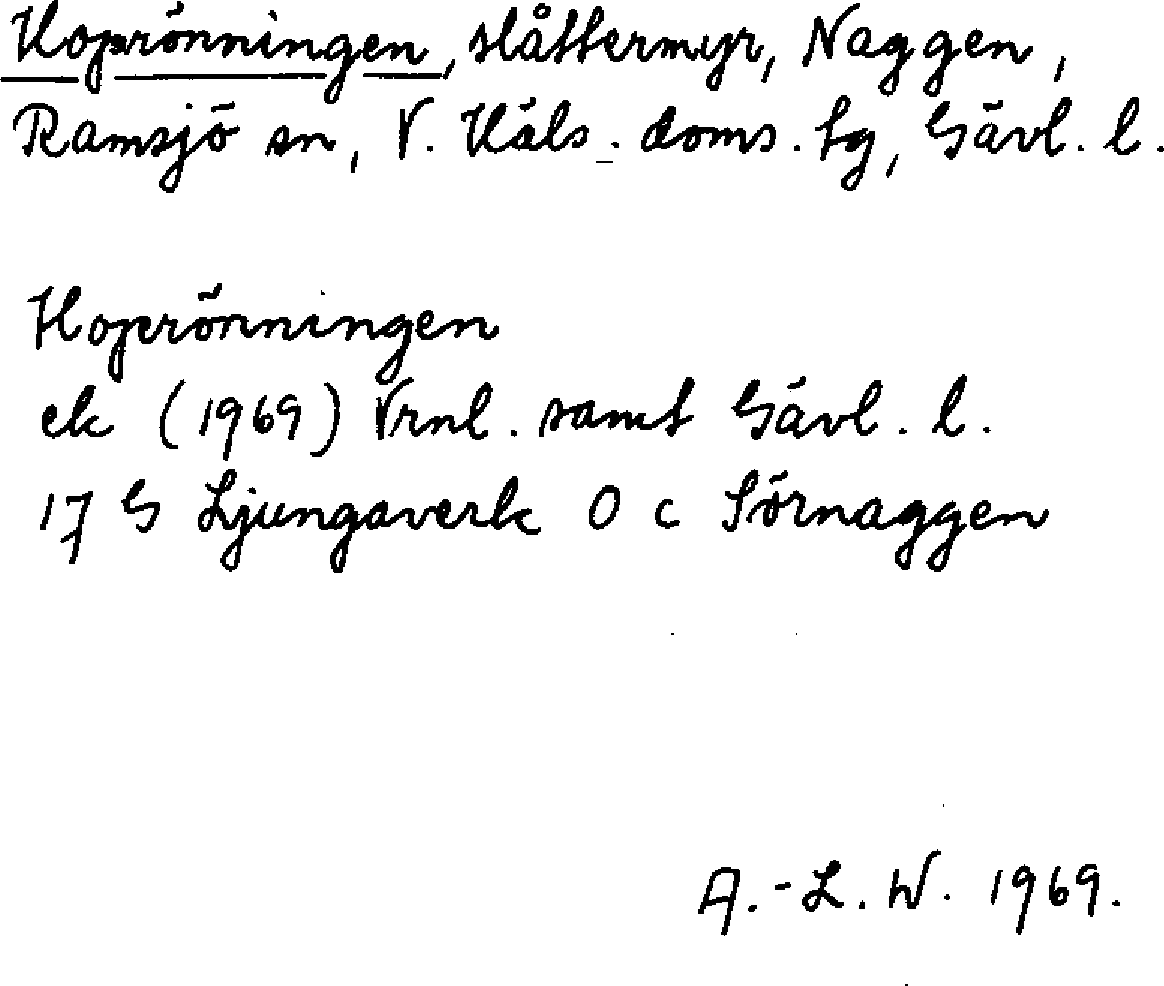 Hoprönningen, slåttermyr, Naggen,
Ramsjö sn, V. Häls. doms. tg, Gävl. l.
Hoprönningen
ek (1969) Vrnl. samt Gävl. l.
17 G Ljungaverk O c Sörnaggen
A.-L. W. 1969.